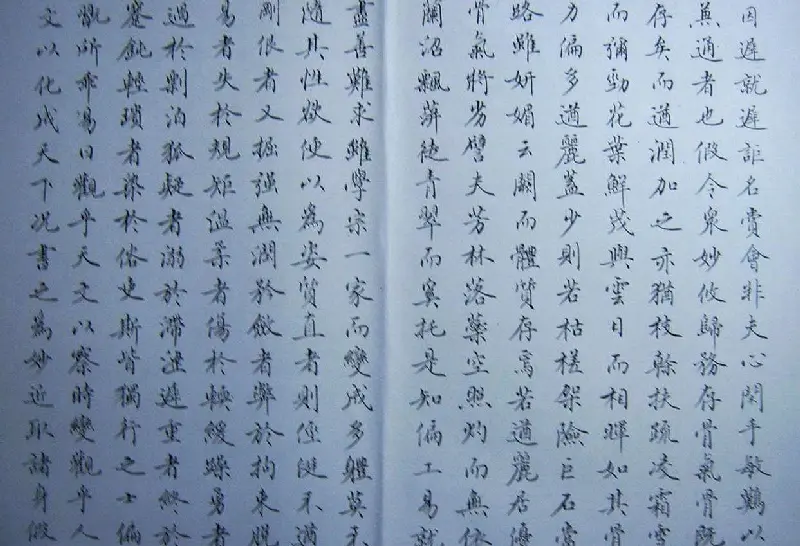 因遲就遲詎名賞會非夫心閑手敏難以
兼通者也假令衆妙攸歸務存骨氣骨既
存矣而遒潤加之亦猶枝幹扶疏凌霜雪
而彌勁花葉鮮茂與雲日而相暉如其骨
力偏多遒麗蓋少則若枯槎架險巨石當
路雖妍媚云闕而體質存焉若遒麗居優
骨氣將劣譬夫芳林落蘂空照灼而無依
蘭沼飄蓱徒青翠而奚托是知偏工易就
盡善難求雖學宗一家而變成多體莫不
隨其性欲便以為姿質直者則俓侹不遒
剛佷者又掘強無潤矜斂者弊於拘束脫
易者失於規矩溫柔者傷於輭緩躁勇者
過於剽泊狐疑者溺於滯澁遲重者終於
蹇鈍輕瑣者染於俗吏斯皆獨行之士偏
翫所乖易曰觀乎天文以察時變觀乎人
文以化成天下況書之為妙近取諸身假